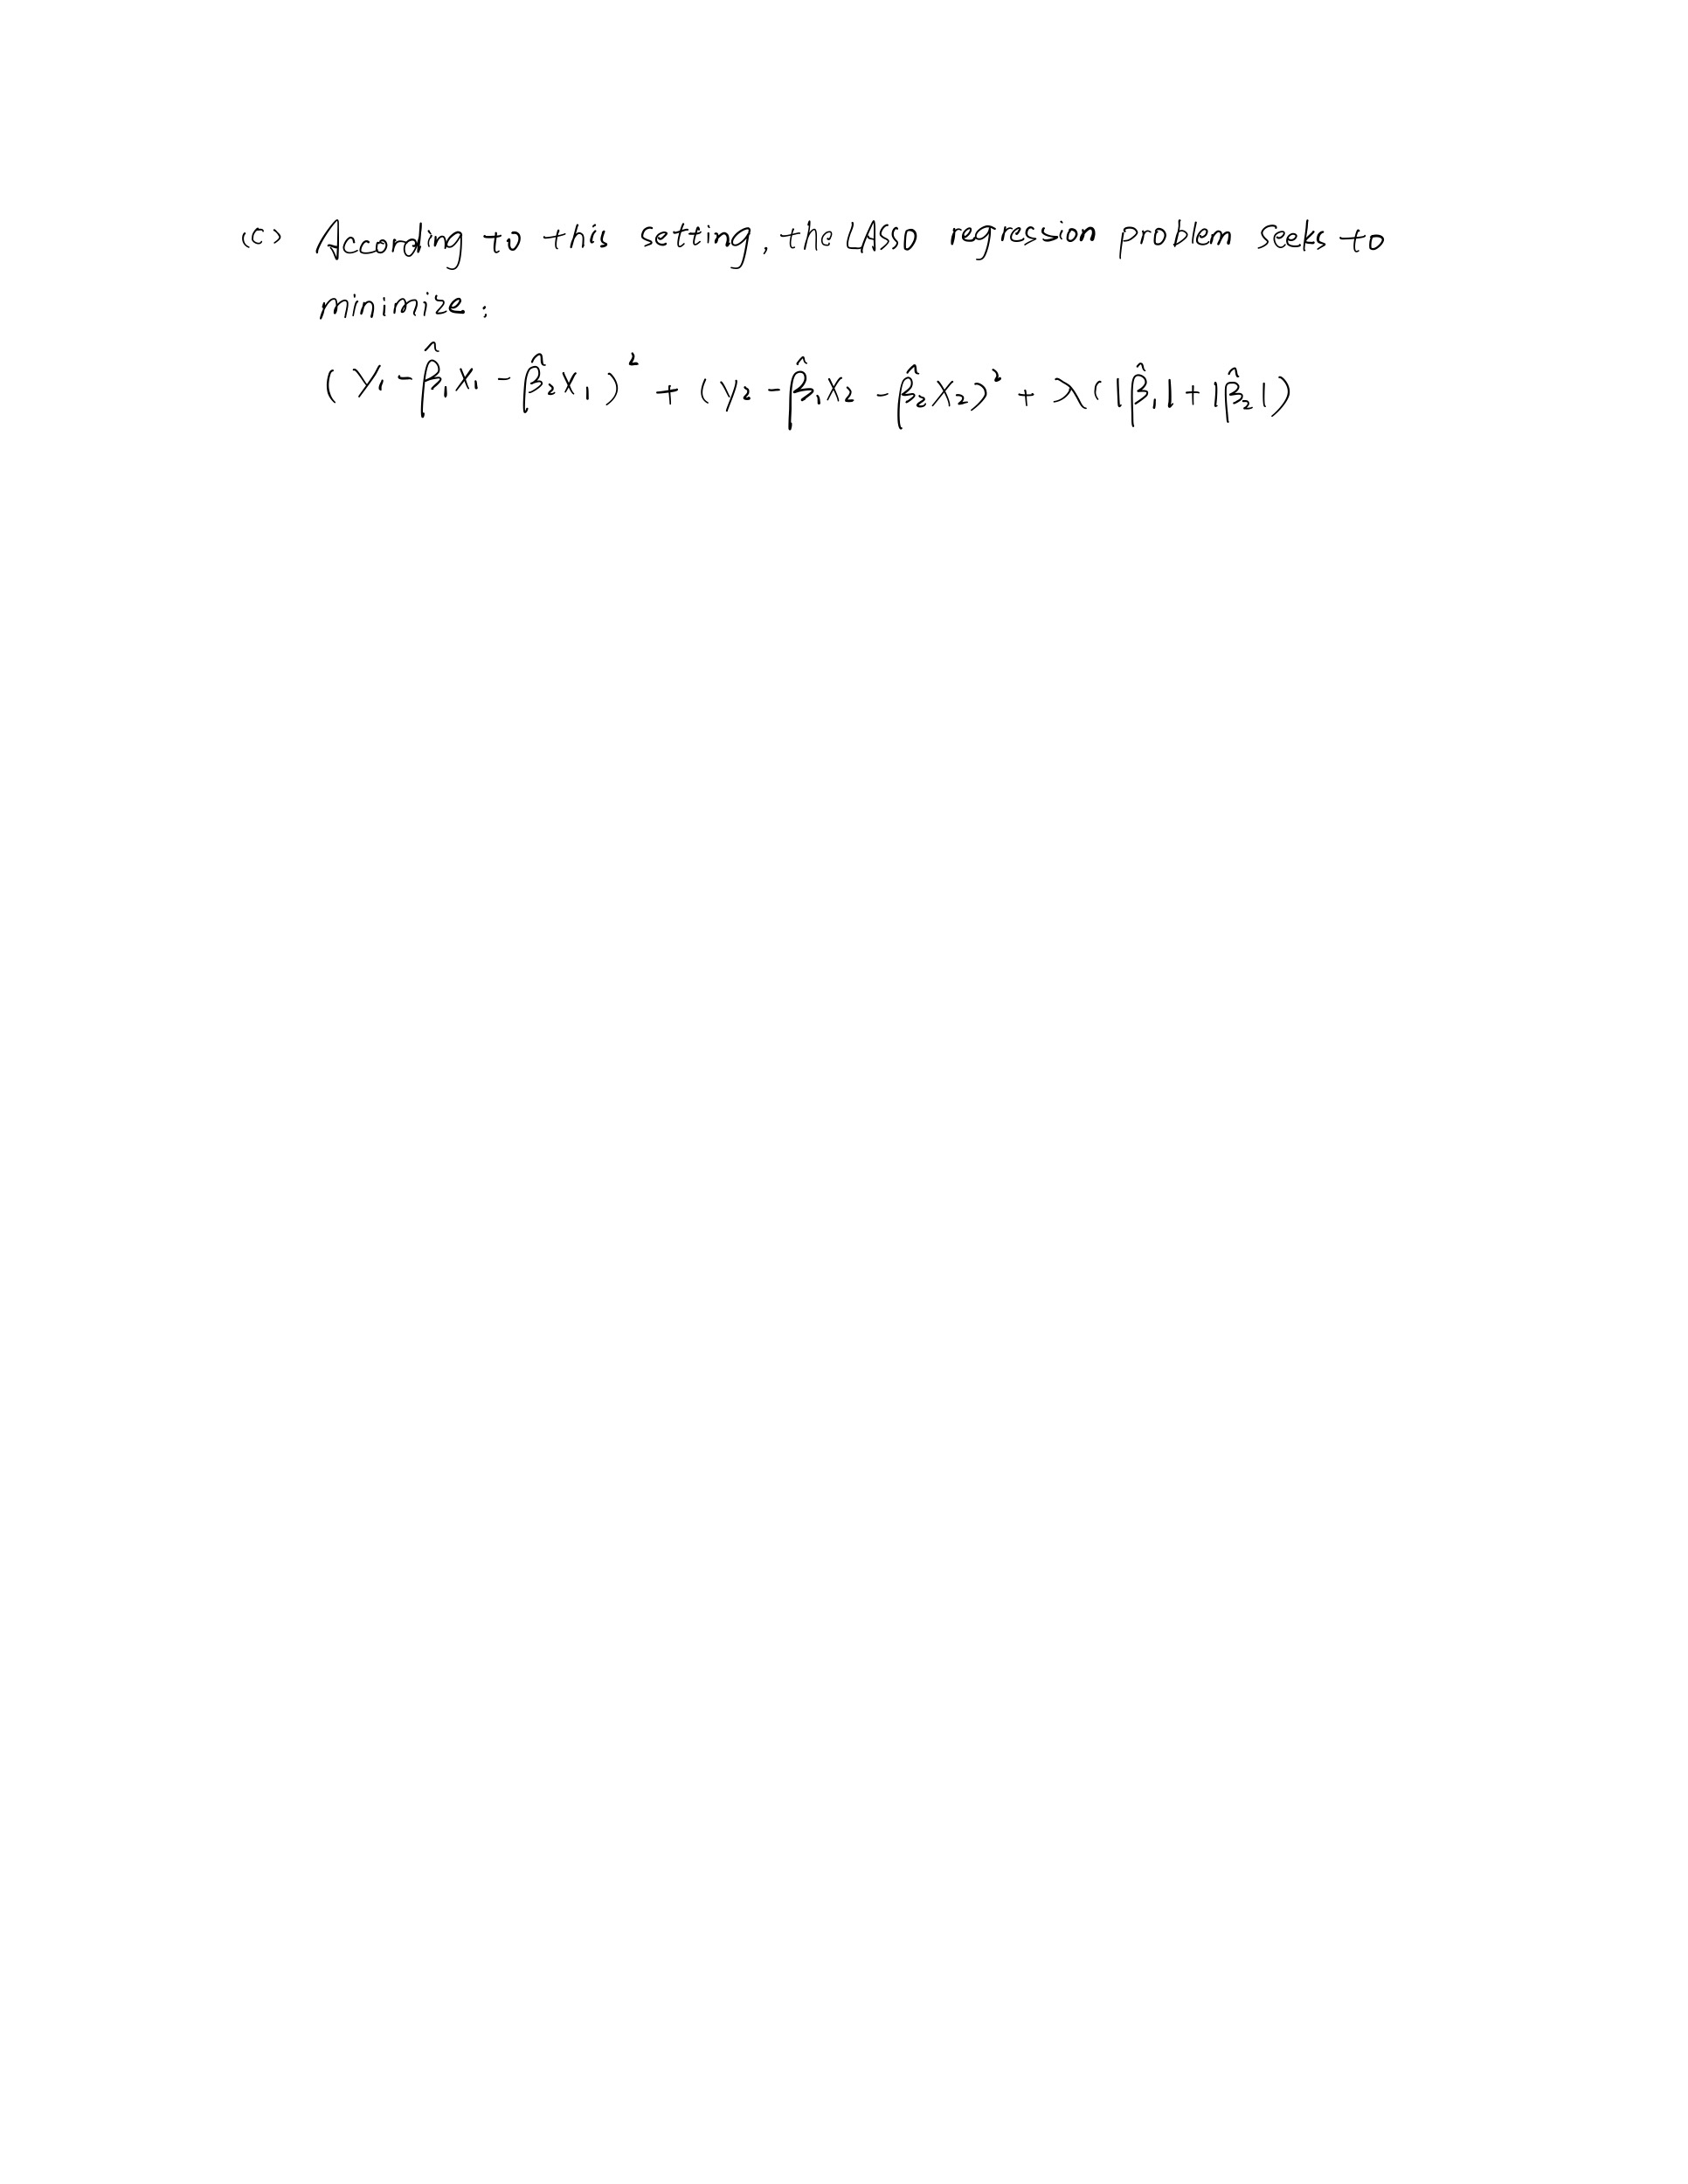 (c) According to this setting, the LASSO regression problem seeks to
minimize:
(y₁ - β̂₁x₁ - β̂₂x₁)² + (y₂ - β̂₁x₂ - β̂₂x₂)² + λ(|β̂₁| + |β̂₂|)